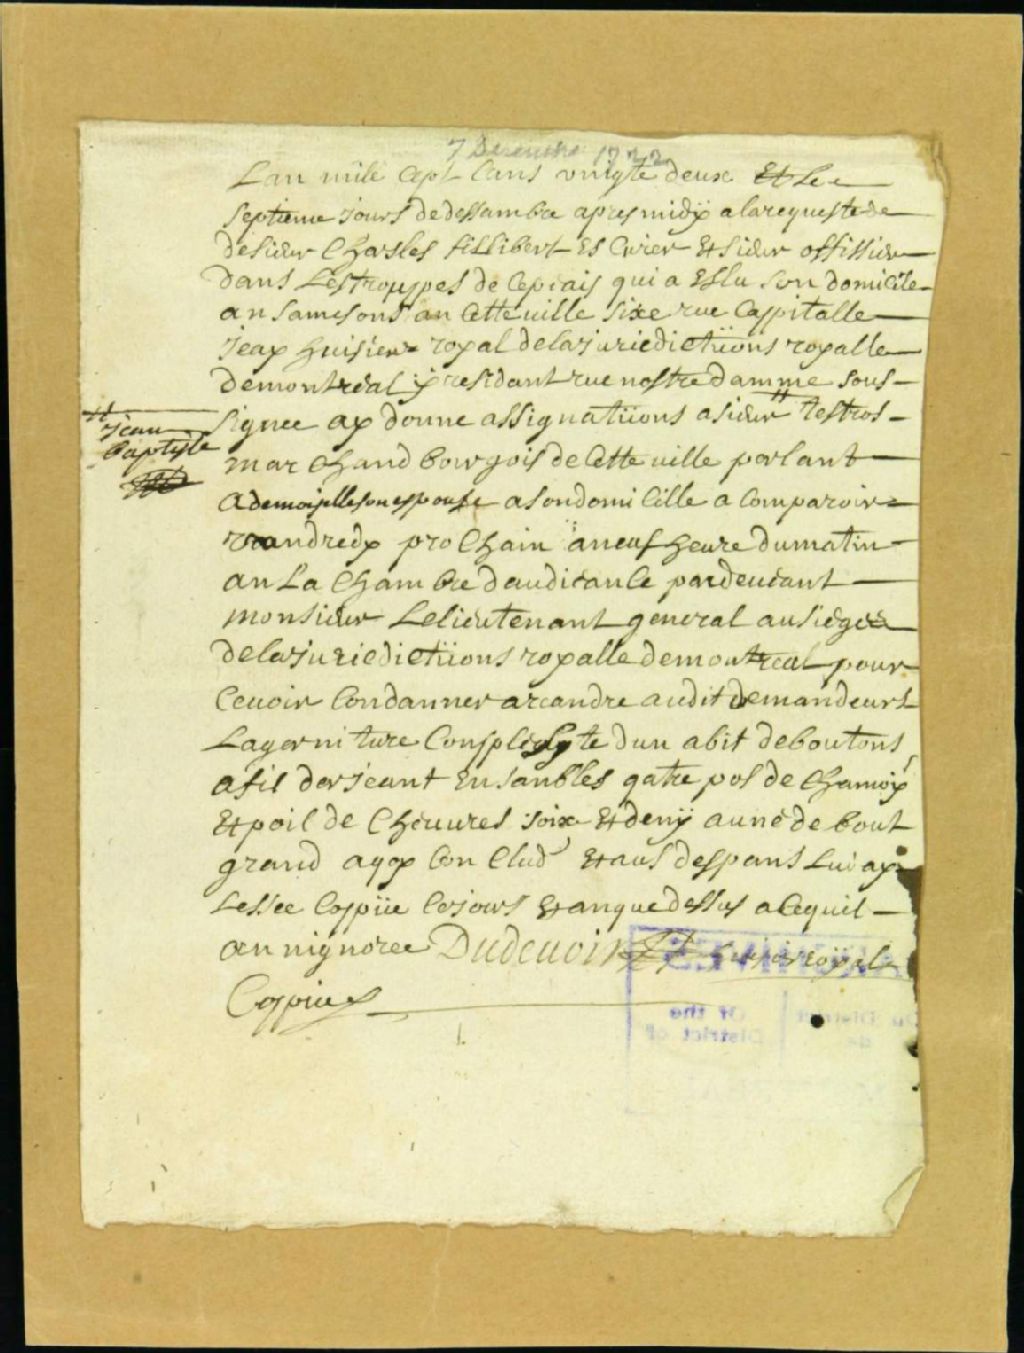 7 Decembre 1722
Lan mile Cept Cans vnigte deux Et Le
Septieme Jours de dessambre apres midÿ a la requeste de
de sieur Charles fillibert Es Cuier Et sieur offissier
dans Les trouppes de Ce païs qui a Eslu son domicile
an sa maison an Cette uille size rue Cappitalle
Jeay huisier royal de la Juriedictiions royalle
de montreal ÿ residant rue nostre damme sous
signee ay donne assignatiions a sieur " testros
" Jean
baptiste
marchand bourgois de Cette uille parlant
A demoiselle son espouse a son domicille a Comparoir
vandredy prochain a neuf heure du matin
an La Chambre daudiance pardeuant
monsieur Le lieutenant general au siege
de la Juriedictiions royalle de montreal pour
Ce uoir Condanner a randre audit demandeurs
La garniture Complette dun abit de boutons
a fil darjeant Ensambles qatre pos de Chamoix
Et poil de Cheuures soix Et demÿ aune de bout
grand Con Clud Et aus despans Lui ay
Lessee Coppiie Ce jours Et an que dessus a Ce quil
an nignoree Dudeuoir huisier royal
Coppiie
ARCHIVES
Du District
de
Of the
District of